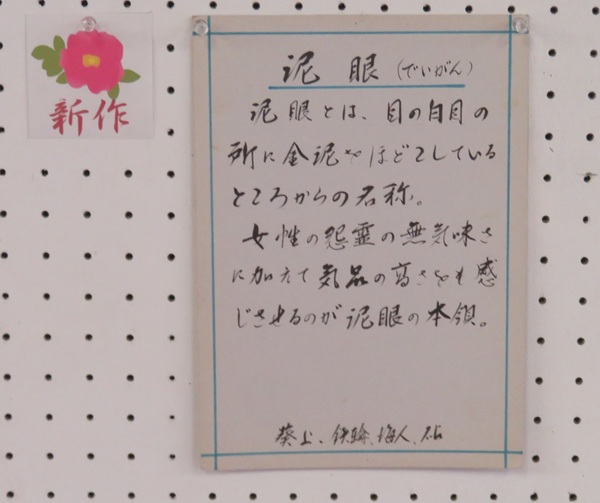 新作
泥眼（でいがん）
泥眼とは、目の白目の
所に金泥をほどこしている
ところからの名称。
女性の怨霊の無気味さ
に加えて気品の高さをも感
じさせるのが泥眼の本領。
葵上、鉄輪、海人、砧